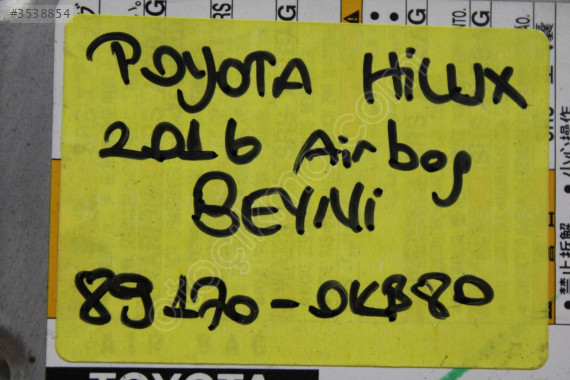 #3538854
POYOTA HiLUX
2016 Airbag
BEYNi
89170-0KB80
TOYOTA